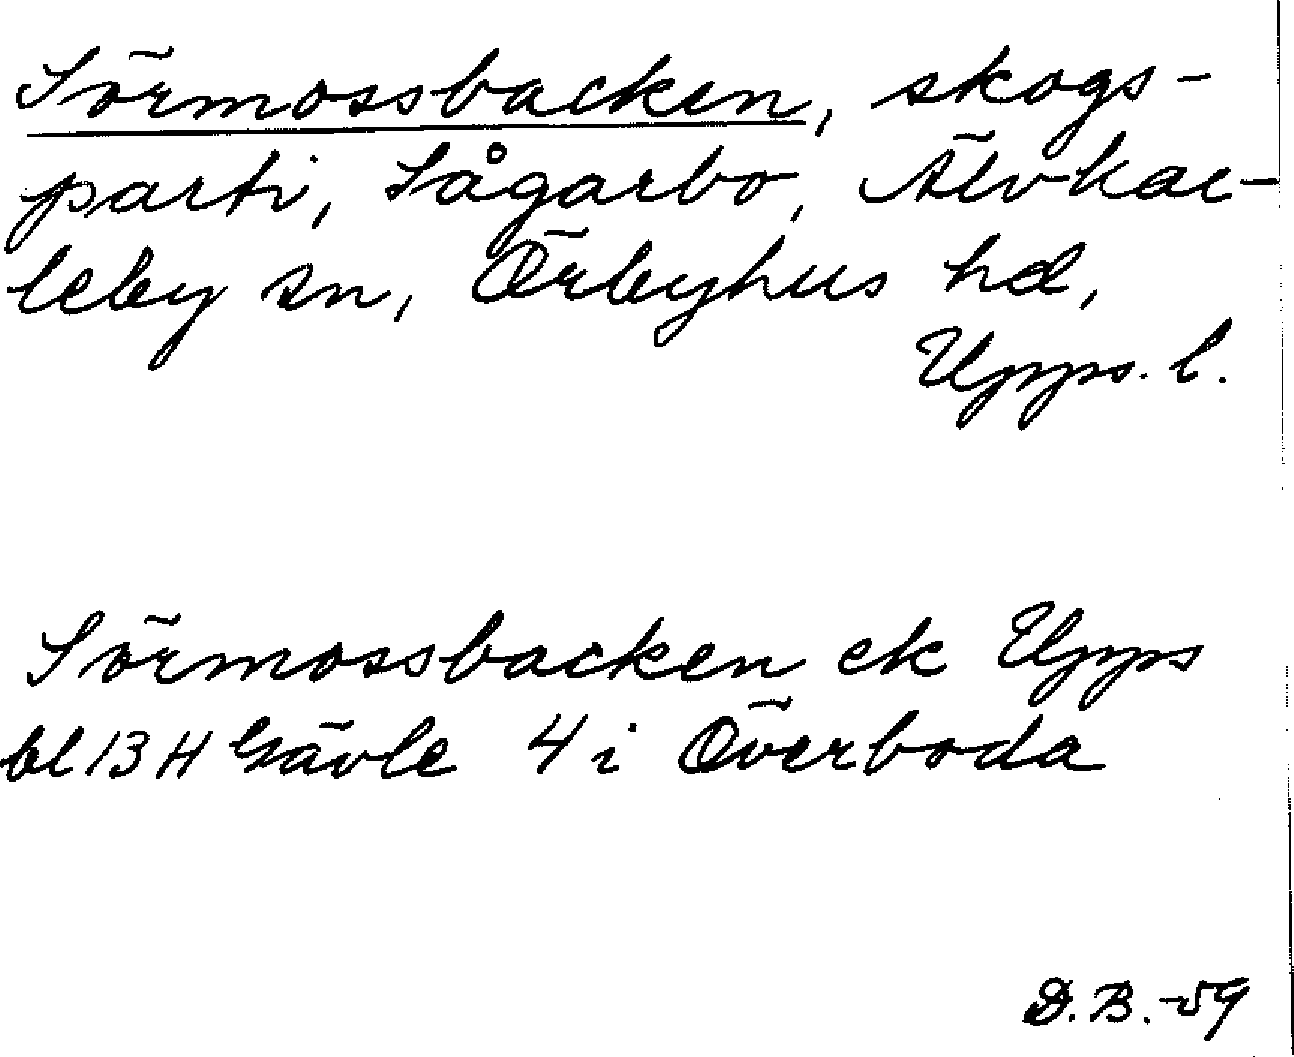 Sörmossbacken, skogs-
parti, Sågarbo, Älvkar-
leby sn, Örbyhus hd,
Upps. l.
Sörmossbacken ek Upps
bl 13 H Gävle 4 i Överboda
D. B. -59